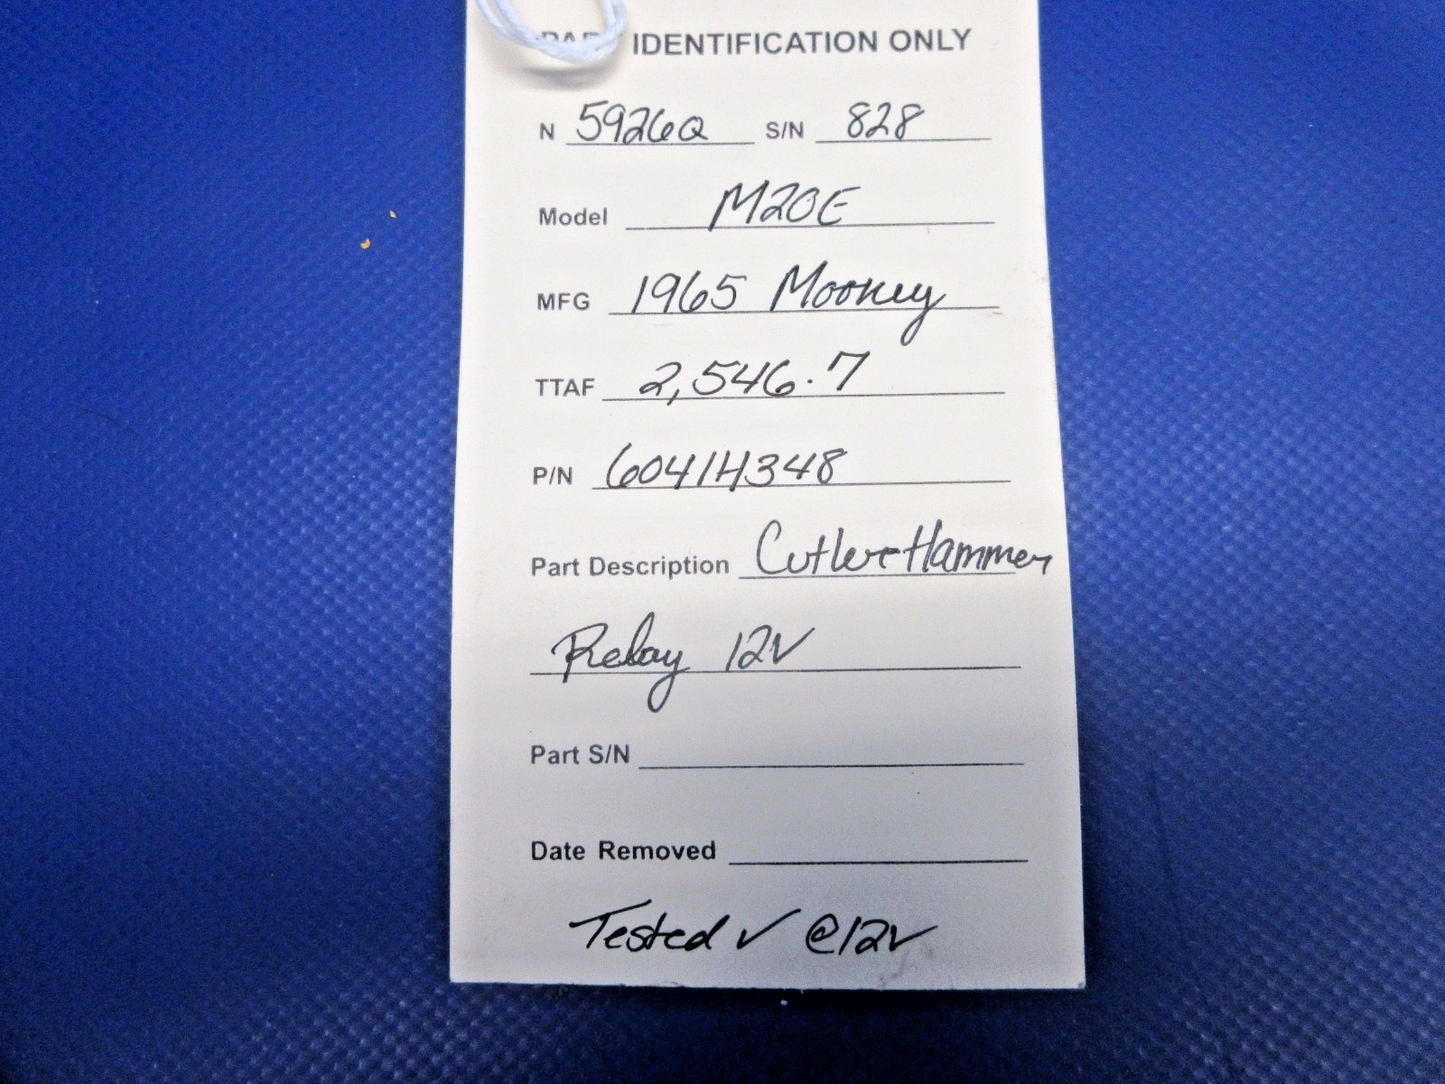 PART IDENTIFICATION ONLY
N 5926Q S/N 828
Model M20E
MFG 1965 Mooney
TTAF 2,546.7
P/N 6041H348
Part Description Cutler-Hammer
Relay 12V
Part S/N
Date Removed
Tested ✓ @12V